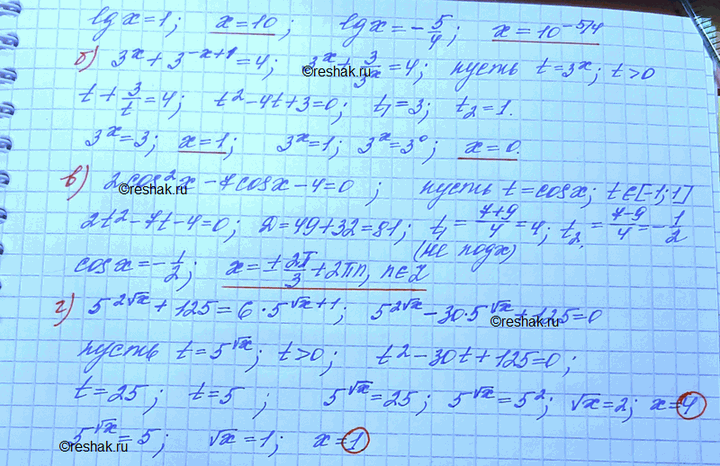 lg x = 1; x = 10; lg x = -5/4; x = 10^(-5/4)
б) 3^x + 3^(-x+1) = 4; 3^x + 3/3^x = 4; пусть t = 3^x; t > 0
©reshak.ru
t + 3/t = 4; t² - 4t + 3 = 0; t₁ = 3; t₂ = 1.
3^x = 3; x = 1; 3^x = 1; 3^x = 3⁰; x = 0.
в) 2cos²x - 7cos x - 4 = 0; пусть t = cos x; t ∈ [-1; 1]
©reshak.ru
2t² - 7t - 4 = 0; D = 49 + 32 = 81; t₁ = (7+9)/4 = 4; t₂ = (7-9)/4 = -1/2
(не подх)
cos x = -1/2; x = ± 2π/3 + 2πn, n ∈ Z
г) 5^(2√x) + 125 = 6 · 5^(√x+1); 5^(2√x) - 30 · 5^(√x) + 125 = 0
©reshak.ru
пусть t = 5^(√x); t > 0; t² - 30t + 125 = 0;
t = 25; t = 5; 5^(√x) = 25; 5^(√x) = 5²; √x = 2; x = 4
5^(√x) = 5; √x = 1; x = 1
©reshak.ru